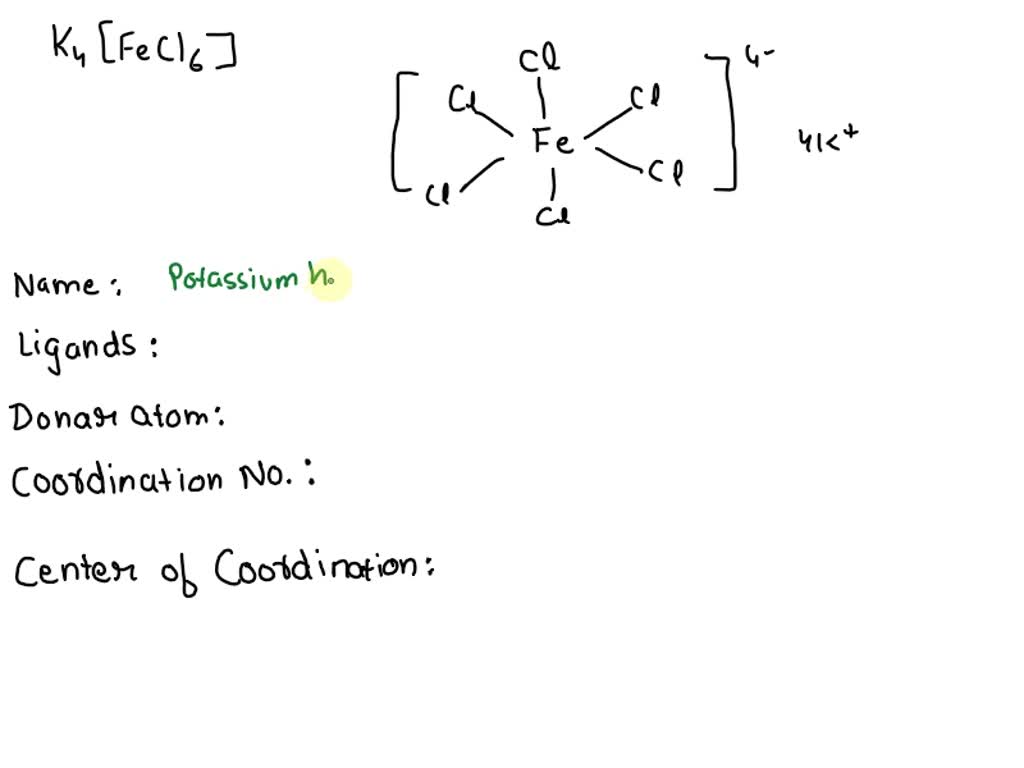 K4 [FeCl6]
[ Cl Cl Cl ]4-
Fe 4K+
Cl Cl Cl
Name: Potassium h
Ligands:
Donar atom:
Coordination No.:
Center of Coordination: